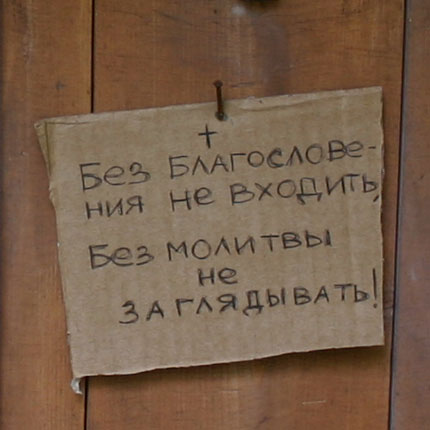 †
Без Благослове-
ния не входить,
Без молитвы
не
заглядывать!